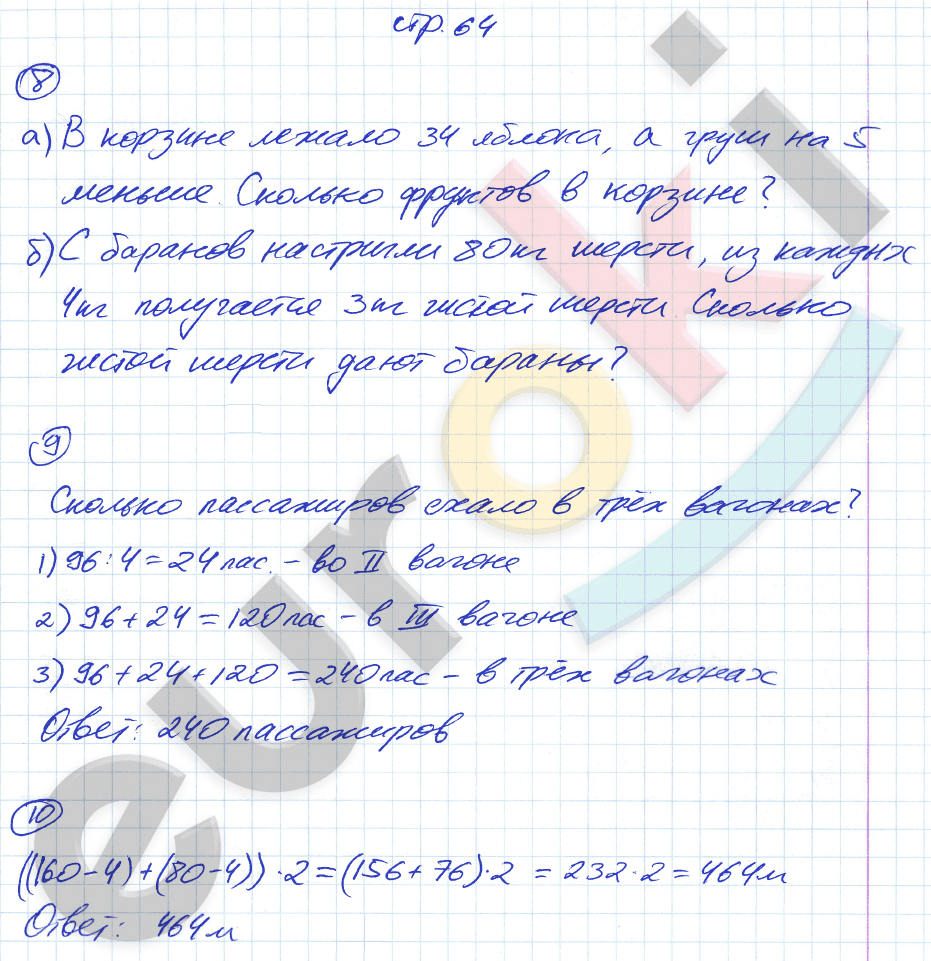 стр. 64
8
а) В корзине лежало 34 яблока, а груш на 5
меньше. Сколько фруктов в корзине?
б) С баранов настригли 80 кг шерсти, из каждых
4 кг получается 3 кг чистой шерсти. Сколько
чистой шерсти дают бараны?
9
Сколько пассажиров ехало в трёх вагонах?
1) 96 : 4 = 24 пас. – во II вагоне
2) 96 + 24 = 120 пас – в III вагоне
3) 96 + 24 + 120 = 240 пас – в трёх вагонах
Ответ: 240 пассажиров
10
((160-4)+(80-4))·2=(156+76)·2 = 232·2 = 464 м
Ответ: 464 м
euroki